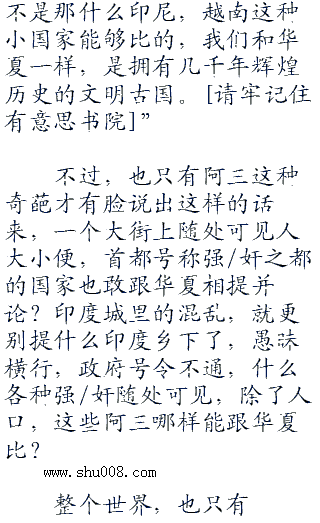 不是那什么印尼，越南这种
小国家能够比的，我们和华
夏一样，是拥有几千年辉煌
历史的文明古国。[请牢记住
有意思书院]”
不过，也只有阿三这种
奇葩才有脸说出这样的话
来，一个大街上随处可见人
大小便，首都号称强/奸之都
的国家也敢跟华夏相提并
论？印度城里的混乱，就更
别提什么印度乡下了，愚昧
横行，政府号令不通，什么
各种强/奸随处可见，除了人
口，这些阿三哪样能跟华夏
比？
www.shu008.com
整个世界，也只有